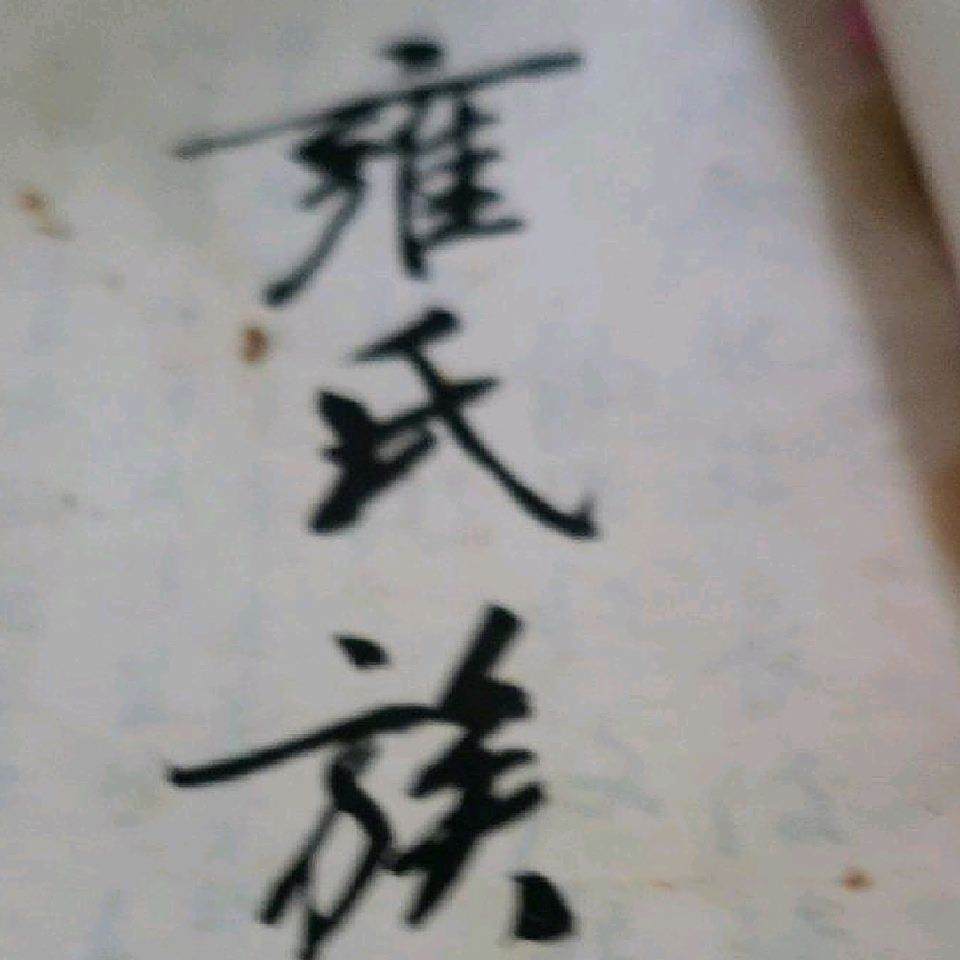 雍氏族